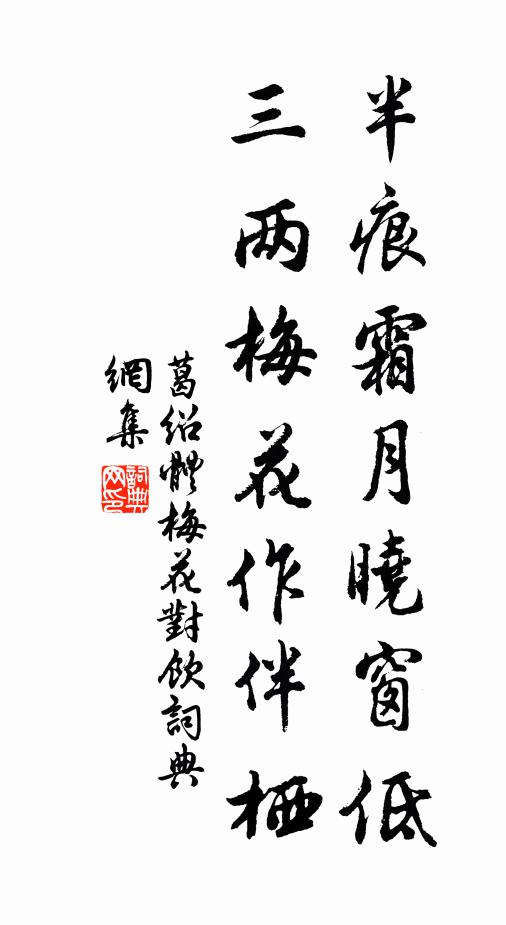 半痕霜月曉窗低
三两梅花作伴栖
葛绍體梅花對飲詞典
網集
詞典网印